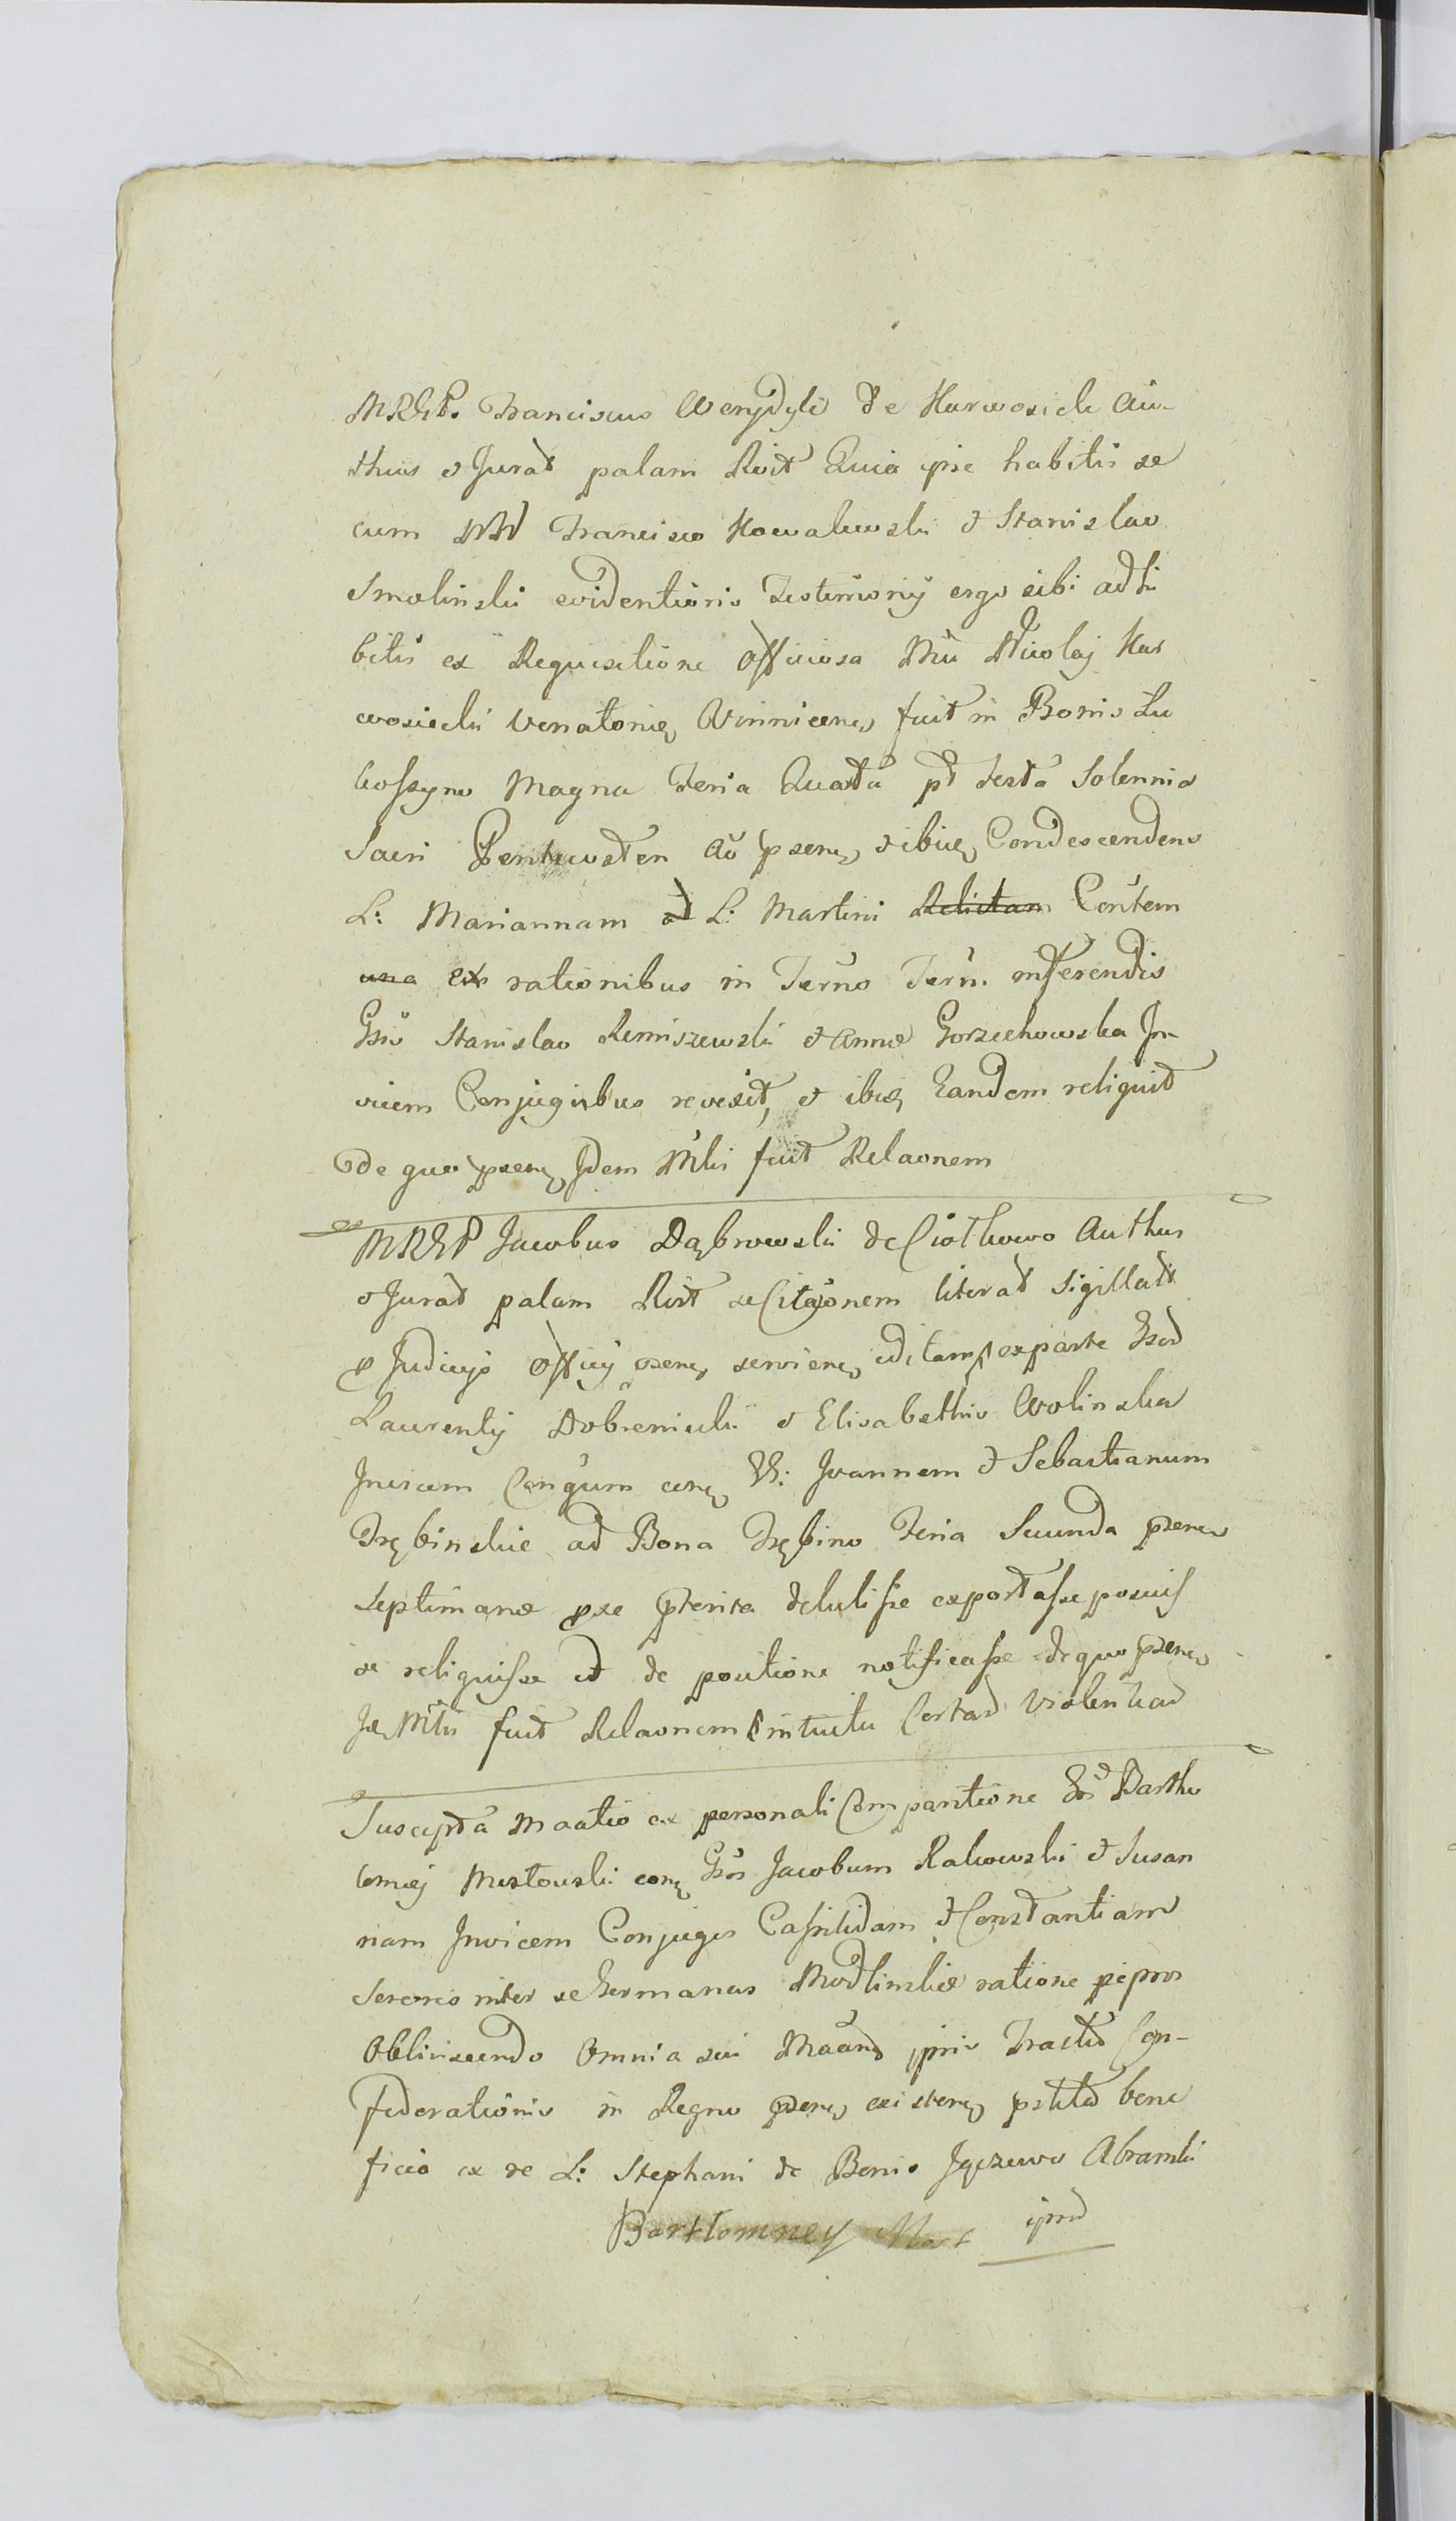 MRGP. Franciscus Wenydyli de Karwosieck Au-
thus et Jurat palam Rsit Quia ipse habitis se
cum NN Francisco Kowalewski et Stanislao
Smolinski evidentioris Testimonij ergo sibi adhi
bitis ex Requisitione Officiosa Mci Nicolaj Kar
wosiecki Venatoris Winnicens fuit in Bonis Lu
boszyno Magna Feria Quarta pt festa Solennia
Sacri Pentecosten Ao psenti et ibiq Condescendens
L: Mariannam et L: Martini Relictam Contem
una ex rationibus in Terno Term inferendis
Gso Stanislao Remiszewski et Anna Gorzechowska In-
vicem Conjugibus revexit, et ibiq Eandem reliquit
de quo psens Idem Mlis fuit Relaonem
MRGP Jacobus Dąbrowski de Ciothowo Authus
et Jurat palam Rsit se Citaonem literat Sigillatt
p Judicijo Officij psens serviens editam exparte Gsod
Laurentij Dobrenieckii et Elisabethis Wolinska
Invicem Congum cong GG: Joannem et Sebastianum
Trębinskie ad Bona Trębino Feria Secunda psens
Septimanæ pxe pterita detulisse exportasse posuis
se reliquisse et de positione notificasse de quo psens
Id Mlis fuit Relaonem intuitu Certar Violentiar
Suscepta Maatio ex personali Comparitione Gsi Bartho
lomiej Mostowski cong Gsos Jacobum Rakowski et Susan
nam Invicem Conjuges Cassildam et Constantiam
Sorores inter se Germanas Modlinskie ratione pipror
Oblinscendo Omnia sui Maand pnis Tractus Con-
federationis in Regno psens existens pstitd bene
ficio ex re L: Stephani de Bonis Jęczewo Abramki
Bartłomney Most ipmd